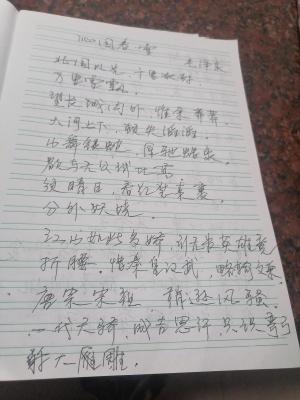 沁园春雪
毛泽东
北国风光 千里冰封
万里雪飘，
望长城内外，惟余莽莽，
大河上下，顿失滔滔，
山舞银蛇，原驰蜡象，
欲与天公试比高
须晴日，看红装素裹，
分外妖娆，
江山如此多娇，引无数英雄竞
折腰。惜秦皇汉武，略输文采，
唐宗宋祖，稍逊风骚。
一代天骄，成吉思汗，只识弯弓
射大雕，